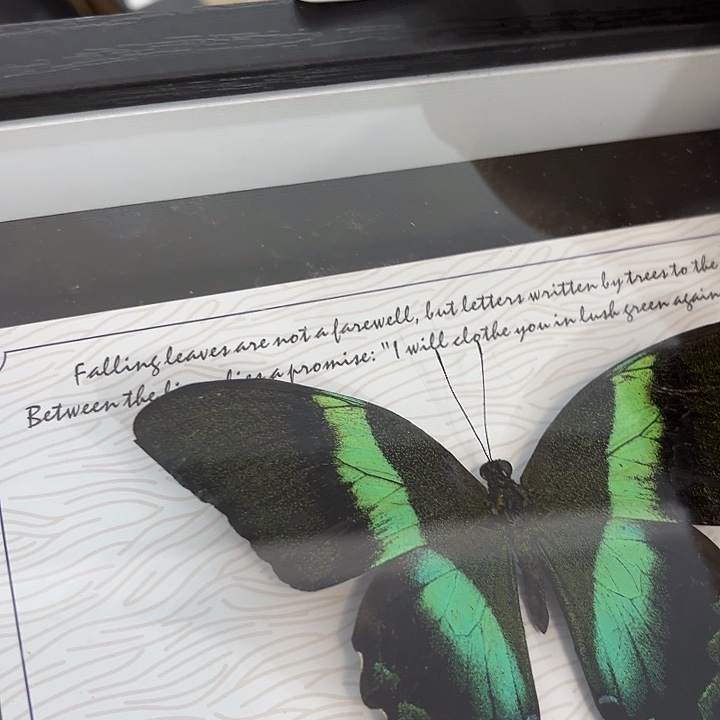 Falling leaves are not a farewell, but letters written by trees to the
Between the lies a promise: "I will clothe you in lush green again